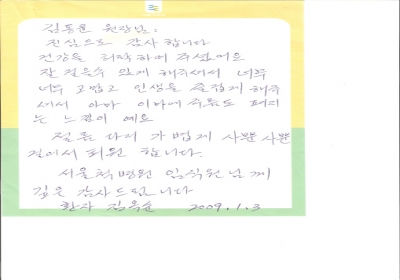 김동윤 원장님:
진심으로 감사 합니다
건강을 리작하여 주셨어요
잘 걸을수 있게 해주셔서 너무
너무 고맙고 인생을 즐겁게 해주
셔서 아마 이마에 주름도 펴지
는 느낌이 예요
절름 다리 가볍게 사뿐 사뿐
걸어서 퇴원 합니다.
서울척병원 임직원님께
깊은 감사드립니다
환자 김옥순 2009.1.3